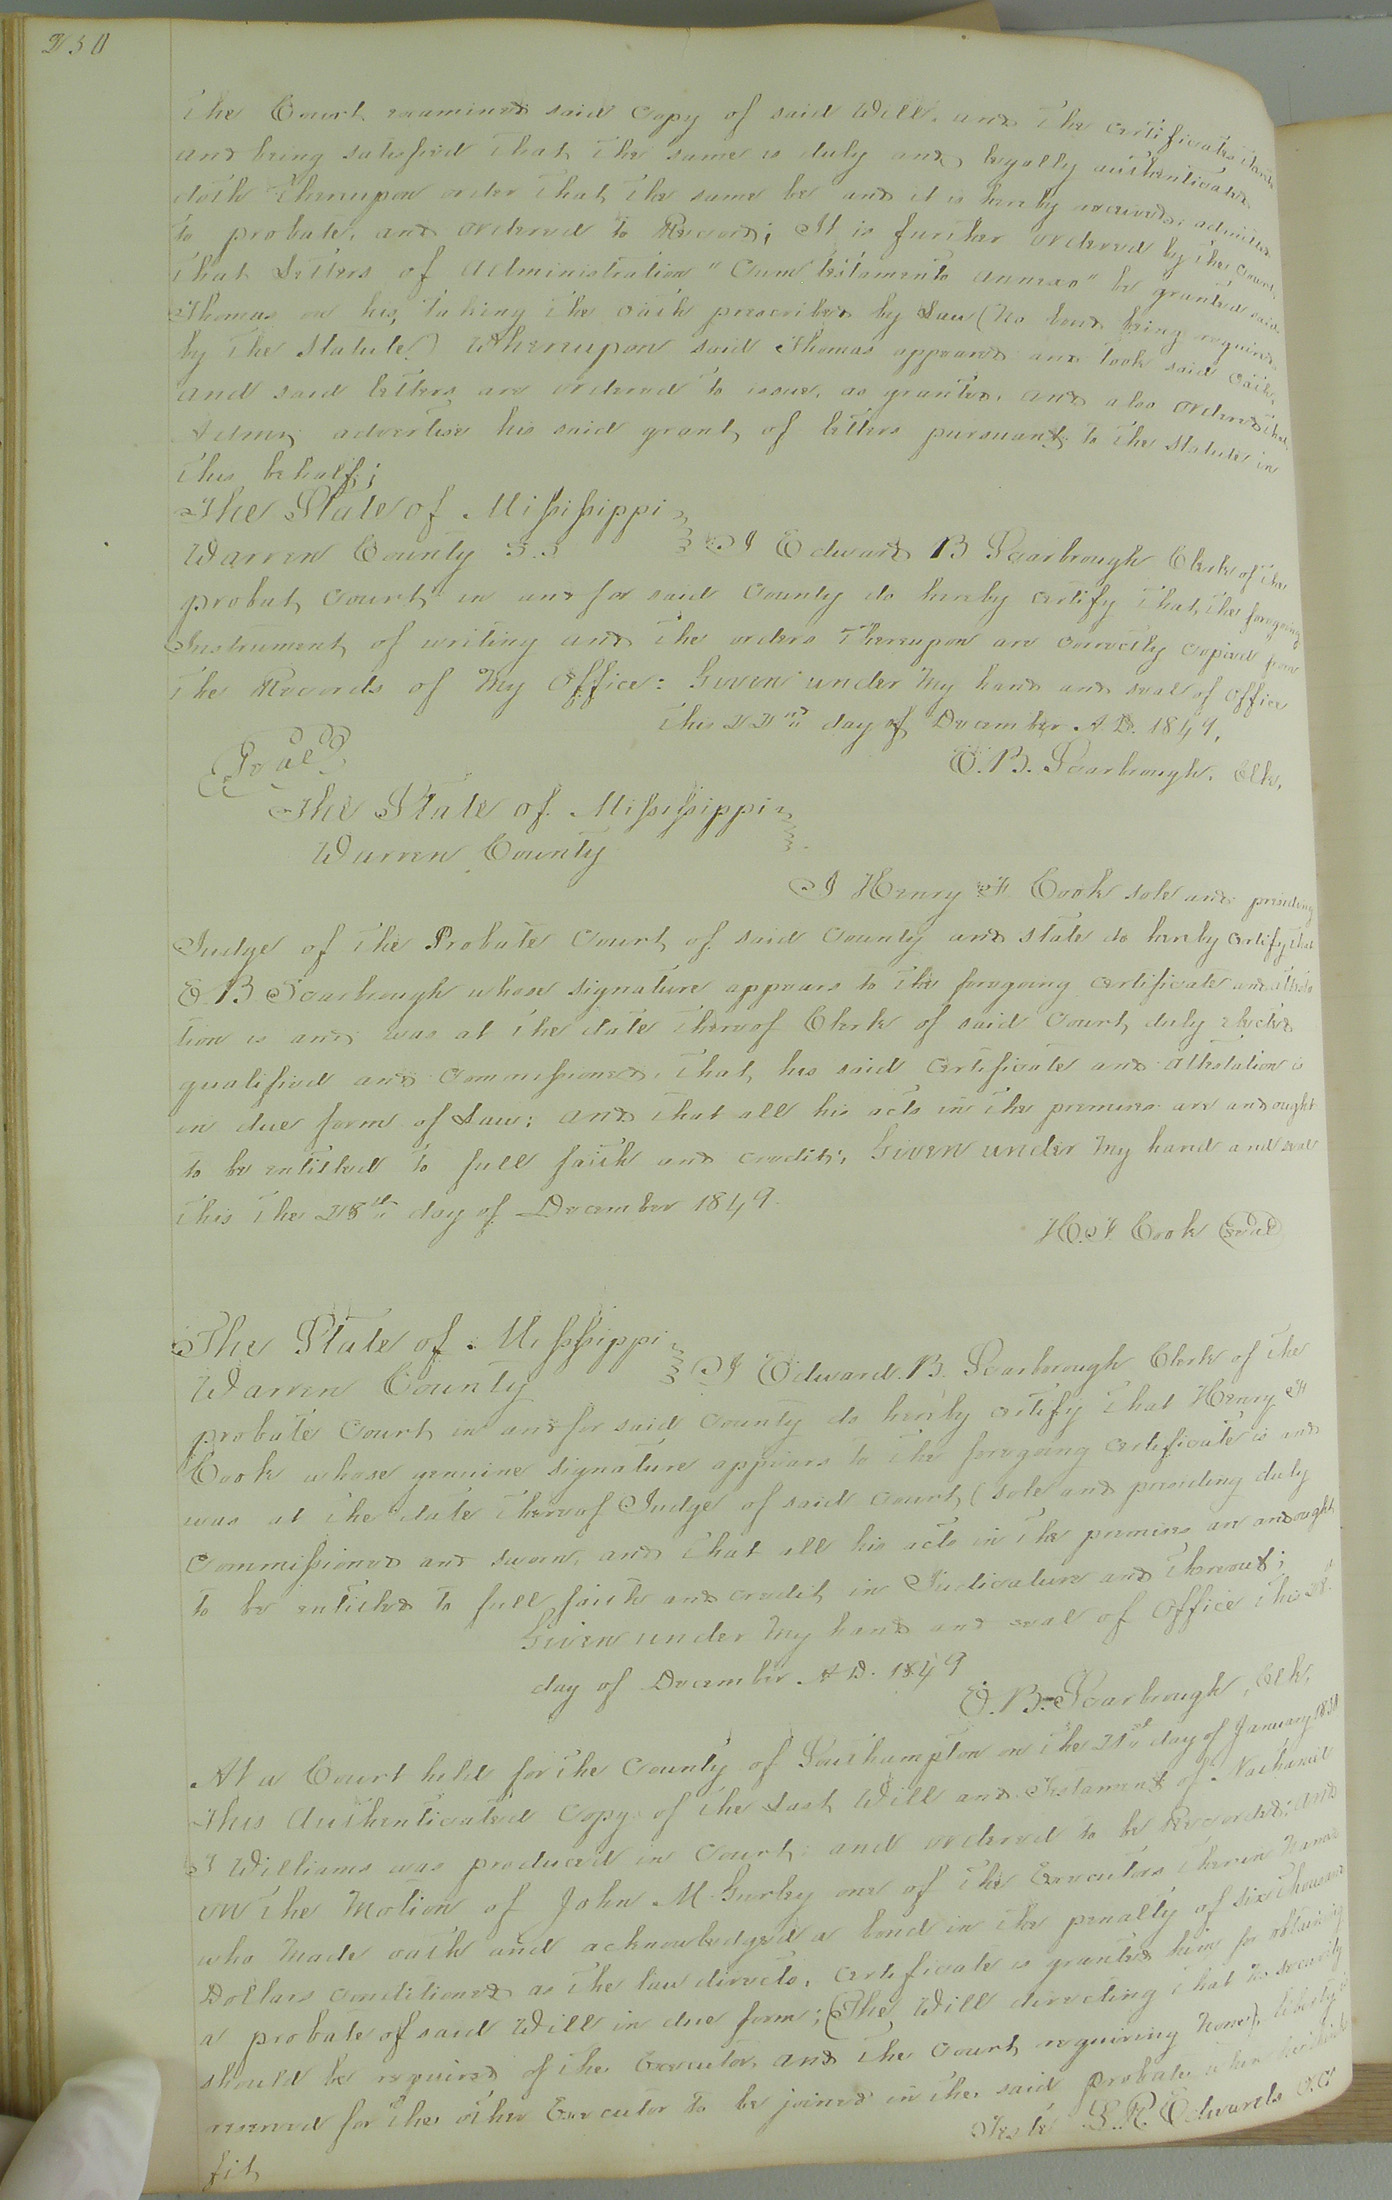 250
The Court examined said copy of said Will, and the certificates thereto
and being satisfied that the same is duly and legally authenticated
doth thereupon order that the same be and it is hereby received, admitted
to probate, and ordered to Record; It is further ordered by the Court
that Letters of Administration "Cum testamento annexo" be granted said
Thomas on his, taking the oath prescribed by Law (no bond being required
by the Statute) Whereupon said Thomas appeared and took said oath,
and said letters are ordered to issue, as granted, and also ordered that
Admr, advertise his said grant of letters pursuant to the Statute in
this behalf;
The State of Mississippi
Warren County S.S I Edward B Scarbrough Clerk of the
probat Court in and for said County do hereby certify that the foregoing
Instrument of writing and the orders thereupon are correctly copied from
the Records of My Office: Given under My hand and seal of office
this 22nd day of December A.D. 1849,
Seal
E. B. Scarbrough, Clk,
The State of Mississippi
Warren County
I Henry F. Cook sole and presiding
Judge of the Probate Court of said County and State do hereby certify that
E B Scarbrough whose signature appears to the foregoing certificate and attesta
tion is and was at the date thereof Clerk of said Court duly elected
qualified and commissioned, that his said certificate and attestation is
in due form of Law; and that all his acts in the premises are and ought
to be entitled to full faith and credit; Given under My hand and seal
this the 28th day of December 1849.
H. F. Cook Seal
The State of Mississippi
Warren County I Edward. B. Scarborough Clerk of the
probate Court in and for said County do hereby certify that Henry F
Cook whose genuine signature appears to the foregoing certificate is and
was at the date thereof Judge of said Court (sole and presiding duly
Commissioned and sworn, and that all his acts in the premises are and ought
to be entitled to full faith and credit in Judicature and thereout;
Given under My hand and seal of office this 28th
day of December A.D. 1849
E. B. Scarbrough, Clk,
At a Court held for the County of Southampton on the 21st day of January 1850
This Authenticated Copy of the Last Will and Testament of Nathaniel
T Williams was produced in Court and ordered to be Recorded: And
on the Motion of John M Gurley one of the Executors therein Named
who Made oath and acknowledged a bond in the penalty of six thousand
Dollars conditioned as the law directs, certificate is granted him for obtaining
a probate of said Will in due form; (The Will directing that no security
should be required of the Executor, and the Court requiring None), liberty is
reserved for the other Executor to be joined in the said probate when he think
fit
Teste L. R. Edwards CC